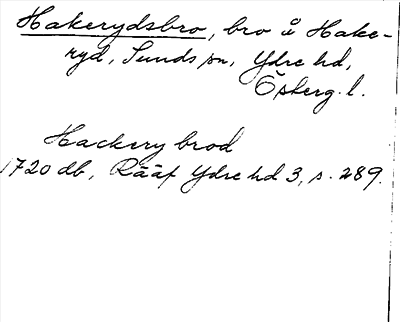 Hakerydsbro, bro å Hake-
ryd, Sunds sn, Ydre hd,
Östberg. l.
Hackery brod
1720 db, Rääf Ydre hd 3, s. 289.